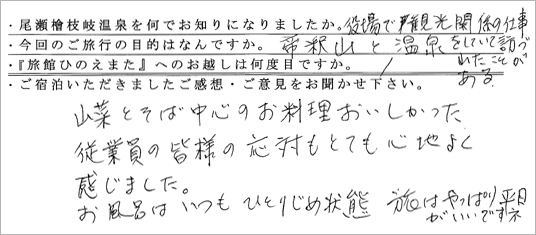 ・尾瀬檜枝岐温泉を何でお知りになりましたか。役場で観光関係の仕事をしていて訪づれたことがある
・今回のご旅行の目的はなんですか。帝釈山と温泉
・『旅館ひのえまた』へのお越しは何度目ですか。
・ご宿泊いただきましたご感想・ご意見をお聞かせ下さい。
山菜とそば中心のお料理おいしかった
従業員の皆様の応対もとても心地よく
感じました。
お風呂はいつもひとりじめ状態 旅はやっぱり平日
がいいですネ